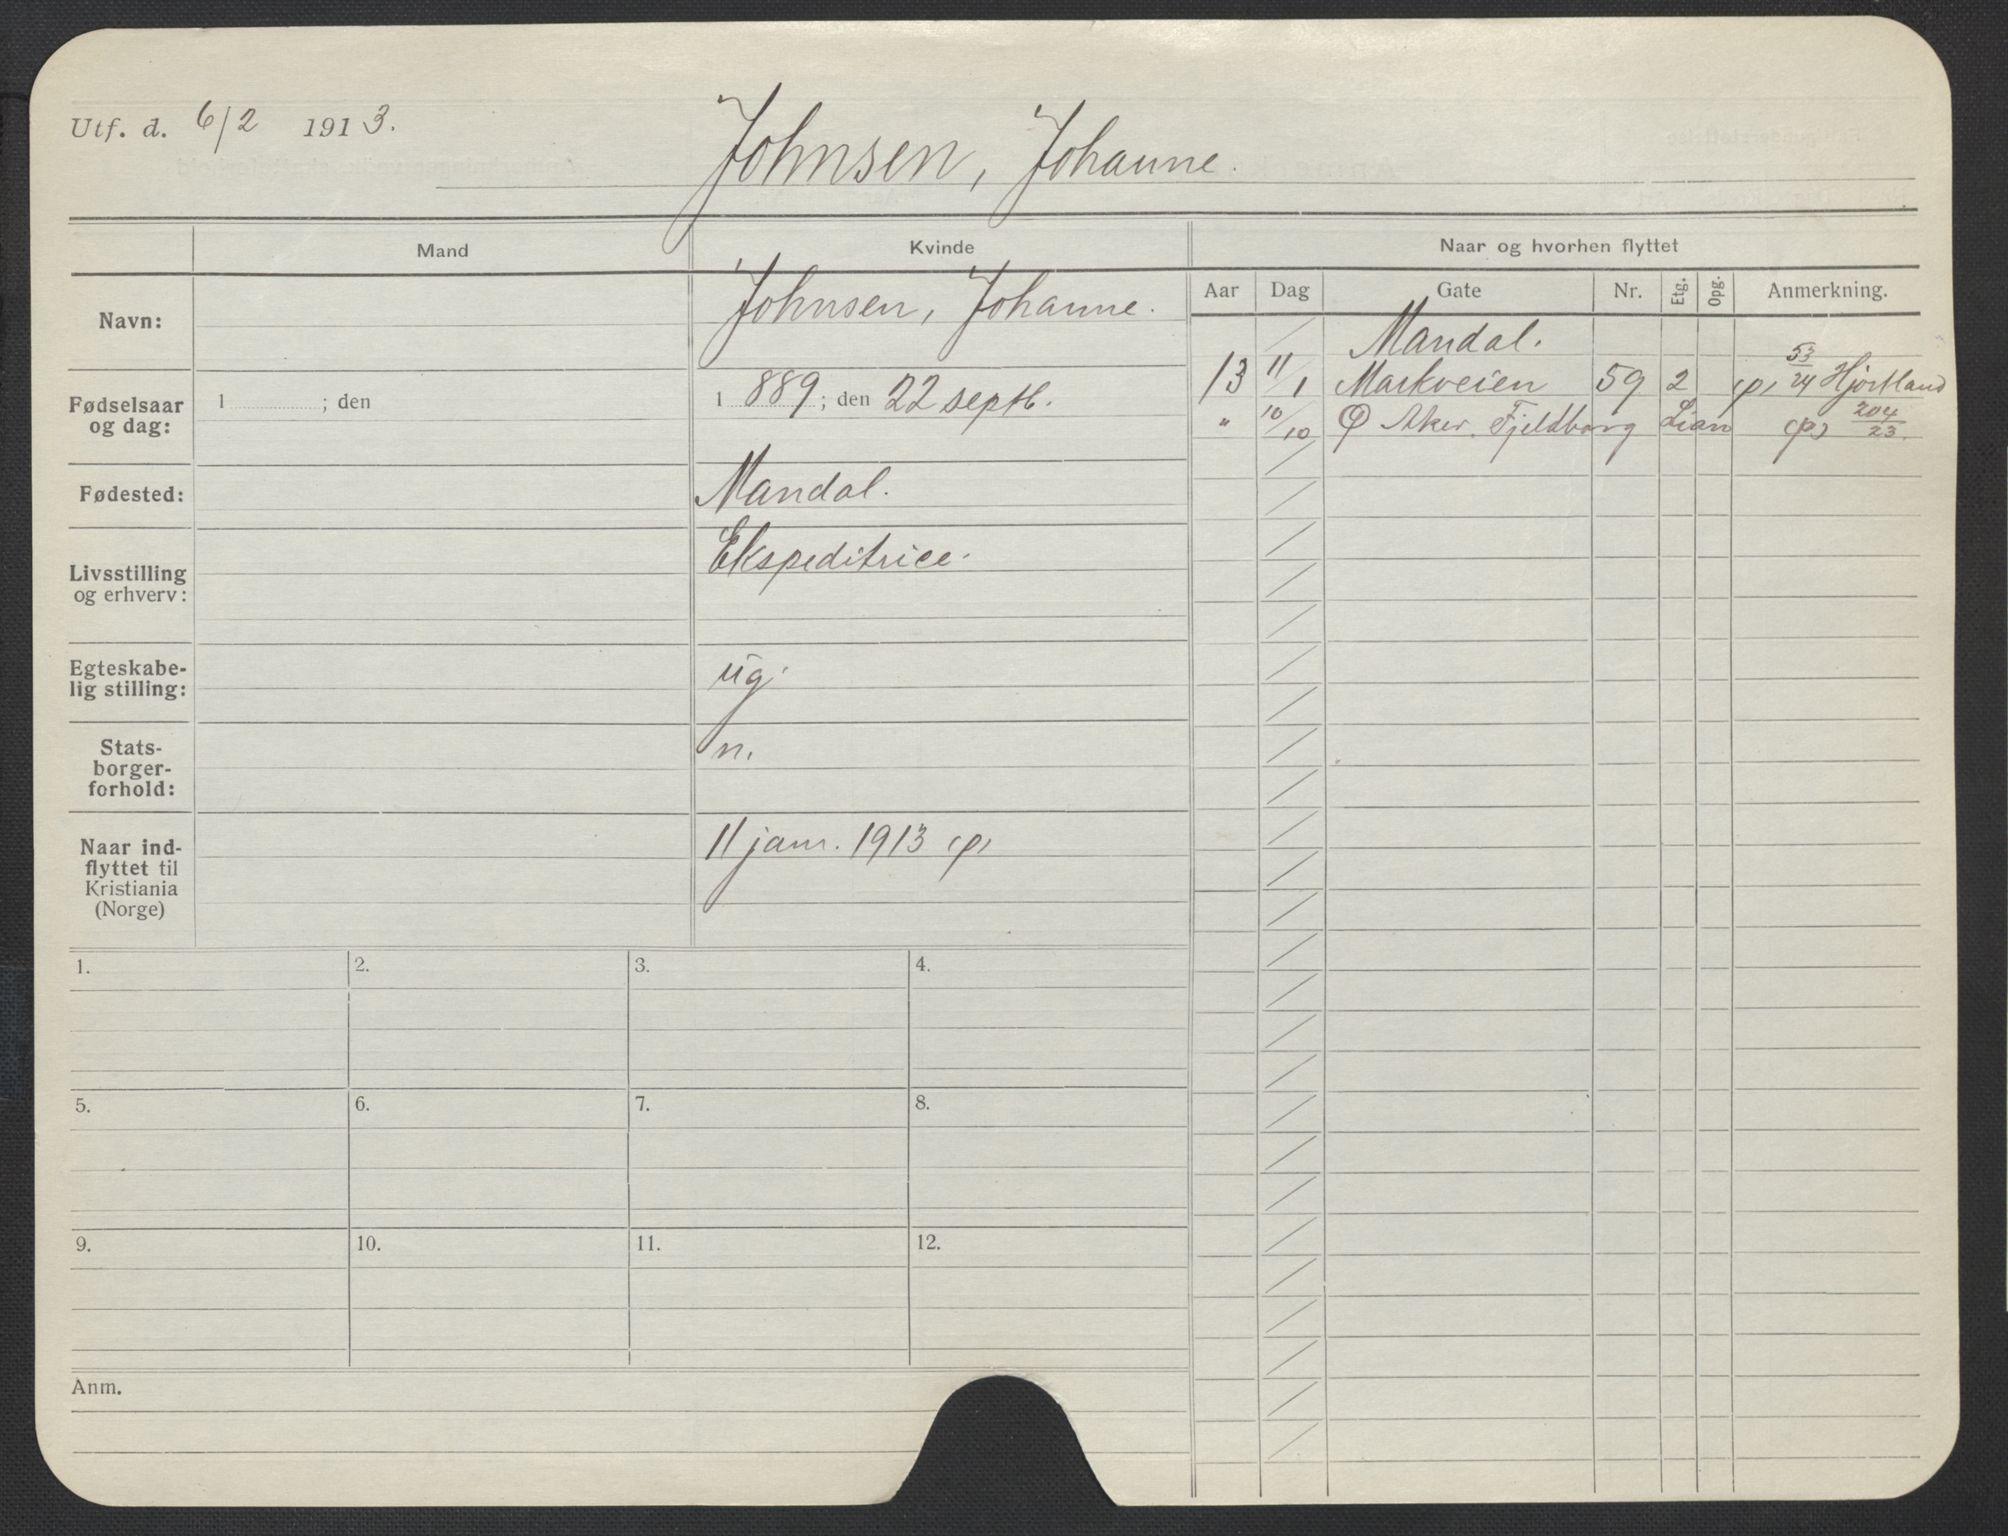 Utf. d. 6/2 1913.
Johnsen, Johanne.
Mand
Kvinde
Naar og hvorhen flyttet
Aar Dag Gate Nr. Etg. Opg. Anmerkning.
Navn: Johnsen, Johanne.
Mandal.
13 11/1 Markveien 59 2 53/24 Hjortland
Fødselsaar og dag: 1 ; den 1889; den 22 septb.
" 10/10 Aker. Fjeldborg Lian 204/23.
Fødested: Mandal.
Livsstilling og erhverv: Ekspeditrice.
Egteskabe-
lig stilling: ug.
Stats-
borger-
forhold: n.
Naar ind-
flyttet til
Kristiania
(Norge)
11 janr. 1913
1. 2. 3. 4.
5. 6. 7. 8.
9. 10. 11. 12.
Anm.